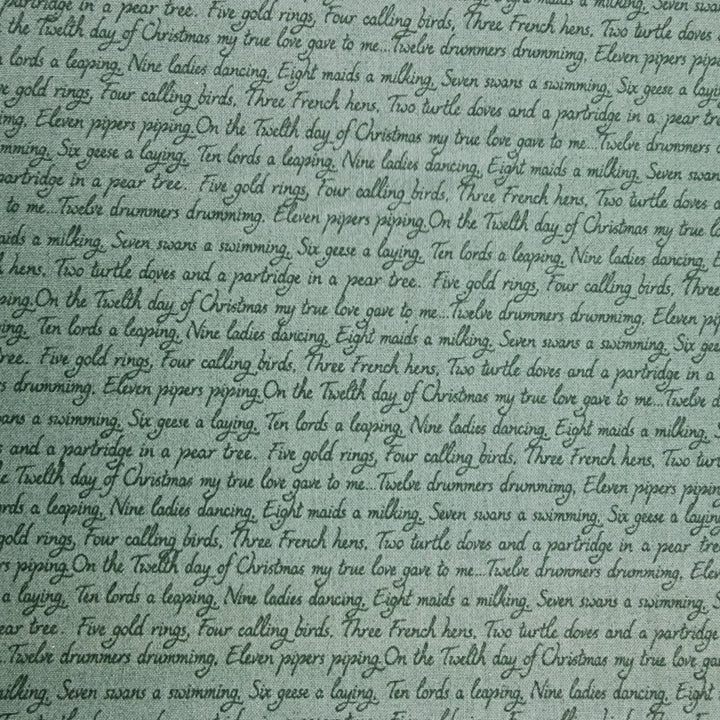 partridge in a pear tree. Five gold rings, Four calling birds, Three French hens, Two turtle doves
the Twelth day of Christmas my true love gave to me...Twelve drummers drummimg, Eleven pipers pip
lords a leaping, Nine ladies dancing, Eight maids a milking, Seven swans a swimming, Six geese a layi
e gold rings, Four calling birds, Three French hens, Two turtle doves and a partridge in a pear tre
img, Eleven pipers piping.On the Twelth day of Christmas my true love gave to me...Twelve drummers
mming, Six geese a laying, Ten lords a leaping, Nine ladies dancing, Eight maids a milking, Seven swan
partridge in a pear tree. Five gold rings, Four calling birds, Three French hens, Two turtle doves a
to me...Twelve drummers drummimg, Eleven pipers piping.On the Twelth day of Christmas my true lo
aids a milking, Seven swans a swimming, Six geese a laying, Ten lords a leaping, Nine ladies dancing, E
hens, Two turtle doves and a partridge in a pear tree. Five gold rings, Four calling birds, Three
ping.On the Twelth day of Christmas my true love gave to me...Twelve drummers drummimg, Eleven pi
ing, Ten lords a leaping, Nine ladies dancing, Eight maids a milking, Seven swans a swimming, Six gee
ree. Five gold rings, Four calling birds, Three French hens, Two turtle doves and a partridge in a
s drummimg, Eleven pipers piping.On the Twelth day of Christmas my true love gave to me...Twelve d
ans a swimming, Six geese a laying, Ten lords a leaping, Nine ladies dancing, Eight maids a milking, S
and a partridge in a pear tree. Five gold rings, Four calling birds, Three French hens, Two turt
e Twelth day of Christmas my true love gave to me...Twelve drummers drummimg, Eleven pipers piping
rds a leaping, Nine ladies dancing, Eight maids a milking, Seven swans a swimming, Six geese a laying
gold rings, Four calling birds, Three French hens, Two turtle doves and a partridge in a pear tre
rs piping.On the Twelth day of Christmas my true love gave to me...Twelve drummers drummimg, Elev
a laying, Ten lords a leaping, Nine ladies dancing, Eight maids a milking, Seven swans a swimming, S
ear tree. Five gold rings, Four calling birds, Three French hens, Two turtle doves and a partridge
..Twelve drummers drummimg, Eleven pipers piping.On the Twelth day of Christmas my true love gav
ilking, Seven swans a swimming, Six geese a laying, Ten lords a leaping, Nine ladies dancing, Eight